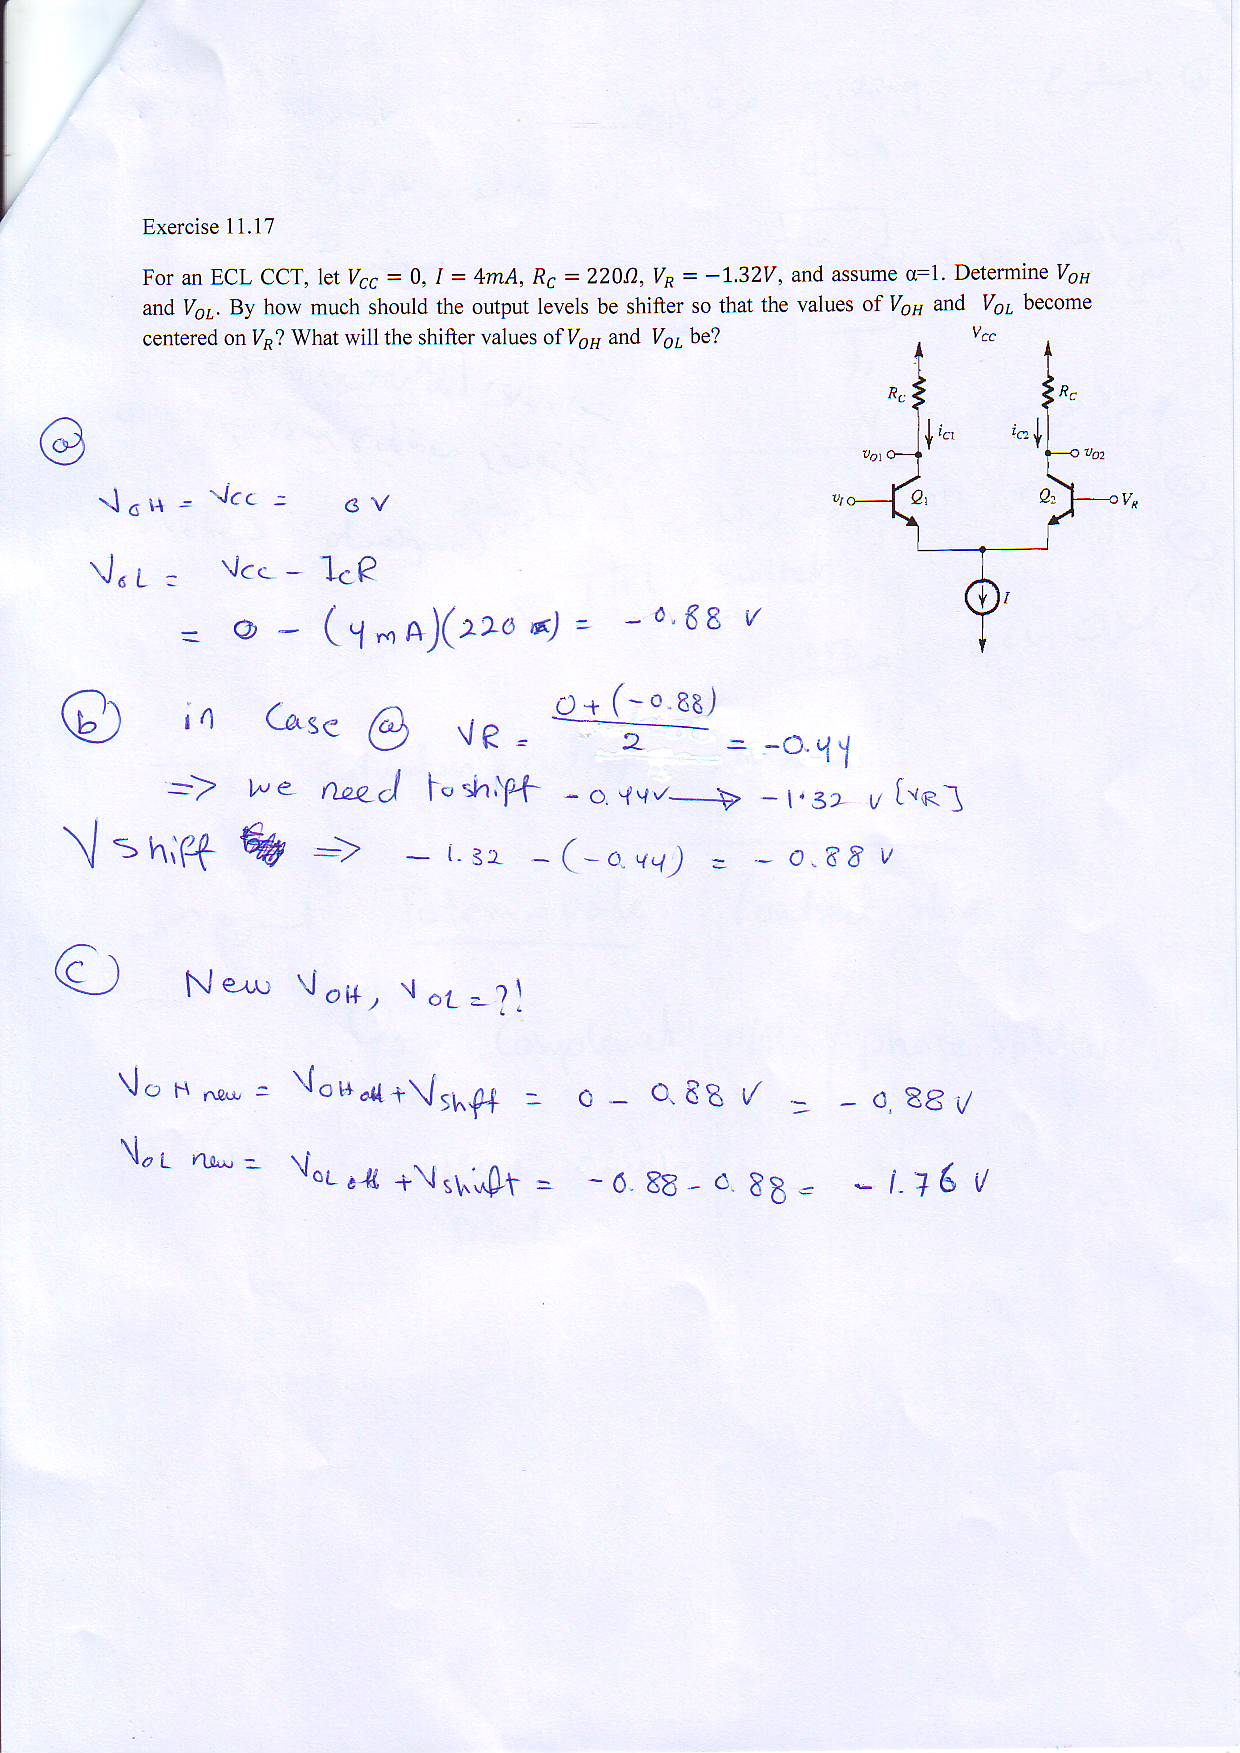 Exercise 11.17
For an ECL CCT, let VCC = 0, I = 4mA, RC = 220Ω, VR = −1.32V, and assume α=1. Determine VOH
and VOL. By how much should the output levels be shifter so that the values of VOH and VOL become
centered on VR? What will the shifter values of VOH and VOL be?
VCC
RC
RC
iC1
iC2
vO1
vO2
vI
Q1
Q2
VR
I
a
VOH = VCC = 0 V
VOL = VCC - ICR
= 0 - (4mA)(220) = -0.88 V
b
in Case a VR = 0+(-0.88)
2
= -0.44
=> we need to shift -0.44V → -1.32 V [VR]
V shift => -1.32 - (-0.44) = -0.88 V
C
New VOH, VOL = ?!
VOH new = VOH old + Vshift = 0 - 0.88 V = -0.88 V
VOL new = VOL old + Vshift = -0.88 - 0.88 = -1.76 V